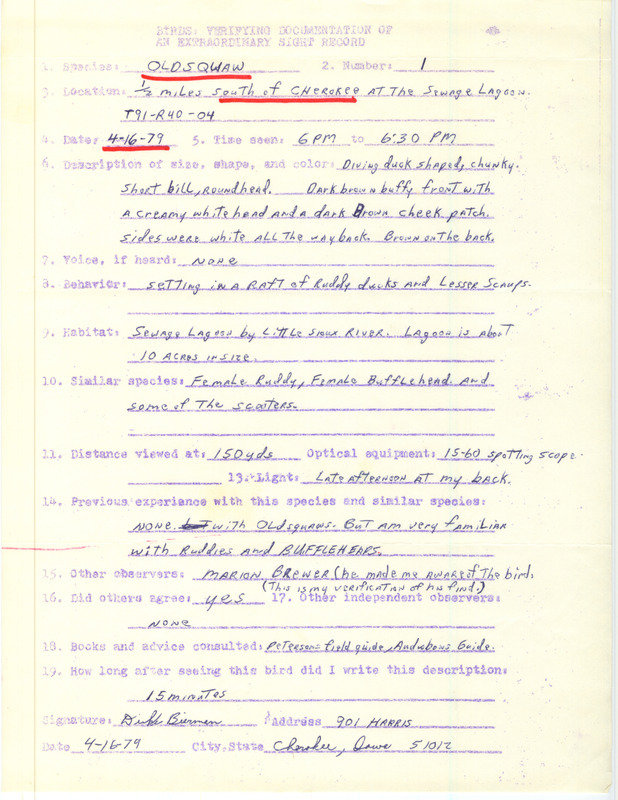 BIRDS: VERIFYING DOCUMENTATION OF
AN EXTRAORDINARY SIGHT RECORD
1. Species: OLDSQUAW 2. Number: 1
3. Location: 1/2 miles south of CHEROKEE AT The Sewage Lagoon.
T91-R40-04
4. Date: 4-16-79 5. Time seen: 6 PM to 6:30 PM
6. Description of size, shape, and color: Diving duck shaped, chunky.
Short bill, roundhead. Dark brown buffy front with
A creamy white head and a dark Brown cheek patch.
Sides were white all the way back. Brown on the back.
7. Voice, if heard: none
8. Behavior: setting in a Raft of Ruddy ducks and Lesser Scaups.
9. Habitat: Sewage Lagoon by Little Sioux River. Lagoon is about
10 Acres in size.
10. Similar species: Female Ruddy, Female Bufflehead. And
some of The scooters.
11. Distance viewed at: 150 yds Optical equipment: 15-60 spotting scope.
13. Light: Late afternoon at my back.
14. Previous experience with this species and similar species:
NONE with Oldsquaws. But am very familiar
with Ruddies and BUFFLEHEADS.
15. Other observers: MARION BREWER (he made me aware of The bird.
(This is my verification of his find.)
16. Did others agree: yes 17. Other independent observers:
none
18. Books and advice consulted: Petersons field guide, Audubons Guide.
19. How long after seeing this bird did I write this description:
15 minutes
Signature: Bierman Address 901 HARRIS
Date 4-16-79 City, State Cherokee, Iowa 51012